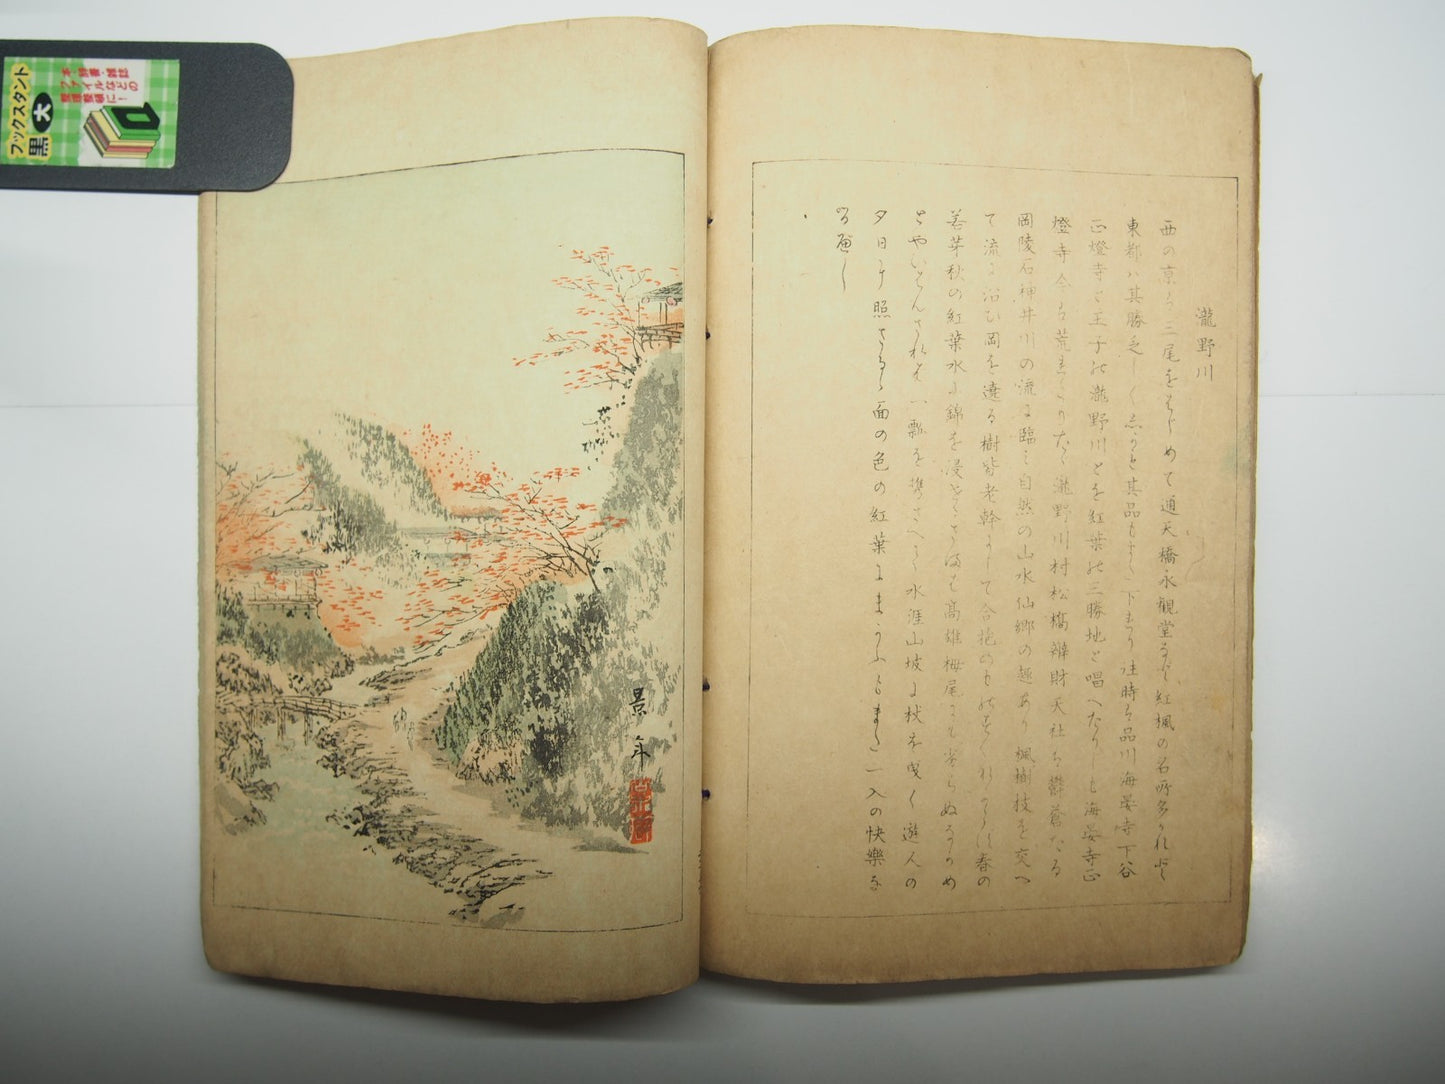 瀧野川
西の京は三尾をはじめて通天橋永観堂など紅楓の名所多かれど
東都ハ其勝乏しく其品も 下まり 往時は品川海晏寺下谷
正燈寺と王子の瀧野川とを紅葉の三勝地と唱へたりしも海晏寺正
燈寺今は荒 たゞ瀧野川村松橋辨財天社は欝蒼たる
岡陵石神井川の流に臨ミ自然の山水仙郷の趣あり楓樹枝を交へ
て流に沿ひ岡を遶る樹皆老幹にして合抱のもの 春の
若芽秋の紅葉水に錦を浸 高雄栂尾にも劣らぬながめ
とやいはんされば一瓢を携さへて水涯山坡に杖を曳く遊人の
夕日に照さるゝ面の色の紅葉にまがふもまた一入の快樂な
るべし
景年
ブックスタント
黒 大
本・辞書・雑誌
ファイルなどの
整理整頓に!